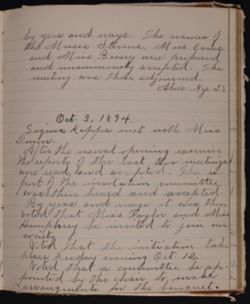 by yeas and nays. The names of
the Misses Stevens, Miss Evans
and Miss Beray were proposed
and unanimously accepted. The
meeting was then adjourned.
Oct. 3, 1894.
Sigma Kappa met with Miss
After the usual opening exercises
the reports of the last two meetings
were read and accepted. The re-
port of the invitation committee
was then heard and accepted.
By yeas and nays it was then
voted that Miss Taylor and Miss
Humphrey be invited to join our
society.
Voted that the initiation take
place Friday evening Oct. 12.
Voted that a committee be ap-
pointed by the chair to make
arrangements for the banquet.